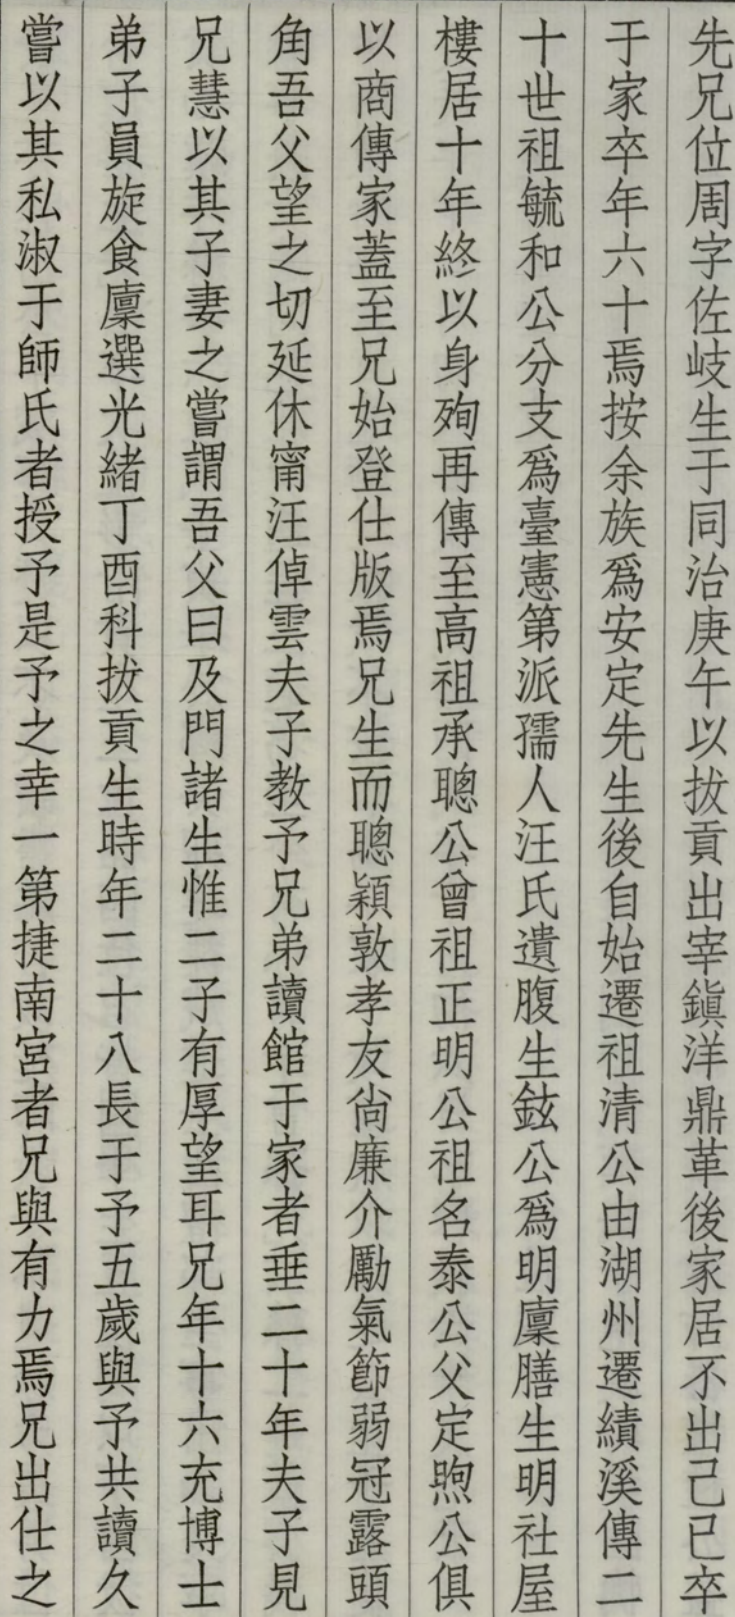 先兄位周字佐岐生于同治庚午以拔貢出宰鎭洋鼎革後家居不出己巳卒
于家卒年六十焉按余族爲安定先生後自始遷祖清公由湖州遷績溪傳二
十世祖毓和公分支爲臺憲第派孺人汪氏遺腹生鉉公爲明廩膳生明社屋
樓居十年終以身殉再傳至高祖承聰公曾祖正明公祖名泰公父定煦公俱
以商傳家蓋至兄始登仕版焉兄生而聰穎敦孝友尙廉介勵氣節弱冠露頭
角吾父望之切延休甯汪倬雲夫子教予兄弟讀館于家者垂二十年夫子見
兄慧以其子妻之嘗謂吾父曰及門諸生惟二子有厚望耳兄年十六充博士
弟子員旋食廩選光緒丁酉科拔貢生時年二十八長于予五歲與予共讀久
嘗以其私淑于師氏者授予是予之幸一第捷南宮者兄與有力焉兄出仕之